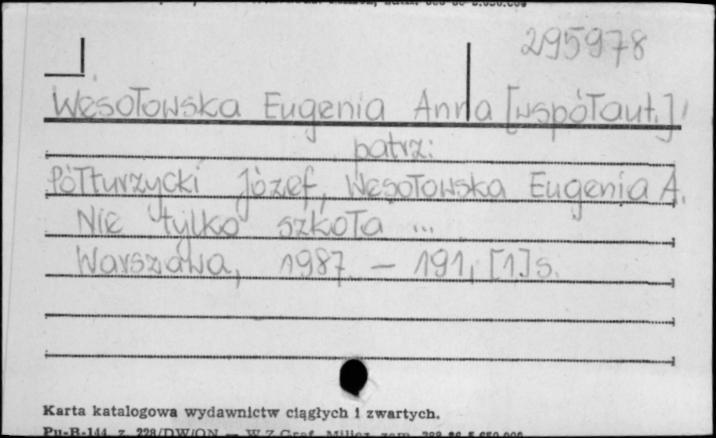 295978
Wesołowska Eugenia Anna [współaut.]
patrz:
Półturzycki Józef, Wesołowska Eugenia A.
Nie tylko szkoła ...
Warszawa, 1987. – 191, [1] s.
Karta katalogowa wydawnictw ciągłych i zwartych.
Pu-B-144 z. 228/DW/ON — W.Z.Graf. Milicz, zam.